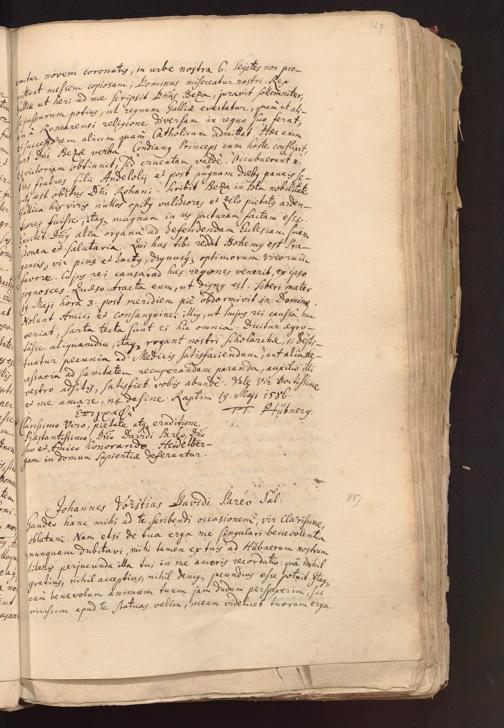 127
novem coronatis, in urbe nostra 6. segetes non pro-
messem copiosam, Dominus misereatur nostri. Rex
ut heri ad me scripsit Dnus Beza, juravit solemniter,
potius, ut regnum Galliæ evertatur, quam ut ab
Romanensi religione diversam in regno suo ferat,
successorem alium quam Catholicum admittat. Hæc enim
Dni Bezæ verba. Condæus Princeps cum hoste conflixit,
victoriam obtinuit, sed cruentam valde. Occubuerunt
fratres filii Andeloti, et post pugnam diebus paucis se-
est obitus Dni Rohani. Scribit Beza in tota nobilitate
Gallica his viris nullos opibus validiores et zelo pietatis arden-
tiores fuisse; itaque magnam in iis jacturam factam esse.
Dnus alia organa ad defendendam Ecclesiam suam
et salutaria. Qui has tibi reddit Bohemus est Pra-
gensis, vir pius et doctus, dignusque optimorum virorum
favore. Cujus rei causa ad has regiones venerit, ex ipso
cognosces. Quæso tracta eum, ut dignus est. Liberi mater
9. Maji hora 3. post meridiem pie obdormivit in Domino.
Nolunt Amici et consanguinei illius, ut hujus rei causa huc
veniat, sarta tecta sunt ei hic omnia. Dicitur ægro-
tasse aliquamdiu, itaque rogant nostri scholarchæ, si desti-
tuatur pecunia ad Medicis satisfaciendum, aut alia ne-
cessaria ad sanitatem recuperandam paranda, auxilio illi
vestro adsitis, satisfiet vobis abunde. Vale Vir doctissime
et me amare, ne desine. Raptim 19. Maji 1586.
TT Hübnerus.
Clarissimo Viro, pietate atque eruditione
Præstantissimo, Dno Davidi Pareo, Dno
suo et Amico honorando, Heidelber-
gam in domum Sapientiæ deferantur.
Johannes Vorstius Davidi Pareo Sal:
885
Gaudeo hanc mihi ad te scribendi occasionem, vir Clarissime,
oblatam. Nam etsi de tua erga me singulari benevolentia
nunquam dubitavi, mihi tamen ex tuis ad Hübnerum nostrum
literis perjucunda illa tui in me amoris recordatio, qua nihil
gratius, nihil acceptius, nihil denique jucundius esse potuit. Itaque
cum benevolum animum tuum jam dudum perspexerim, sic
vicissim apud te statuas velim, meam videlicet tuorum erga